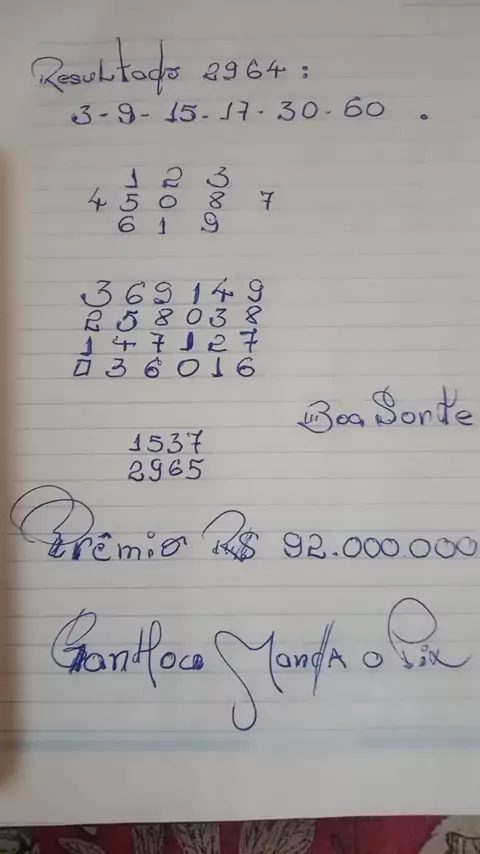 Resultado 2964:
3-9-15-17-30-60.
1 2 3
4 5 0 8 7
6 1 9
3 6 9 1 4 9
2 5 8 0 3 8
1 4 7 1 2 7
0 3 6 0 1 6
Boa Sorte
1537
2965
Prêmio R$ 92.000.000
Manda o Pix